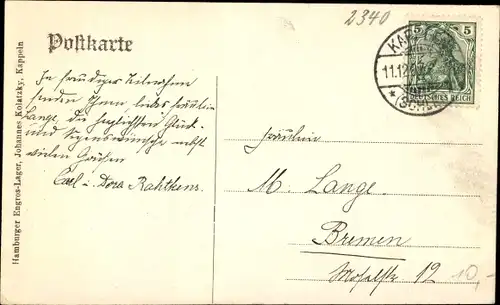 2340
Postkarte
In freudiger Teilnahme
senden Ihnen liebes Fräulein
Lange, die herzlichsten Glück-
und Segenswünsche nebst
vielen Grüßen
Carl u. Dora Rahtkens.
Hamburger Engros-Lager, Johannes Kolatzky, Kappeln
KAPPELN
11.12
5 5
DEUTSCHES REICH
Fräulein
M. Lange.
Bremen
Moselstr 12
10,-